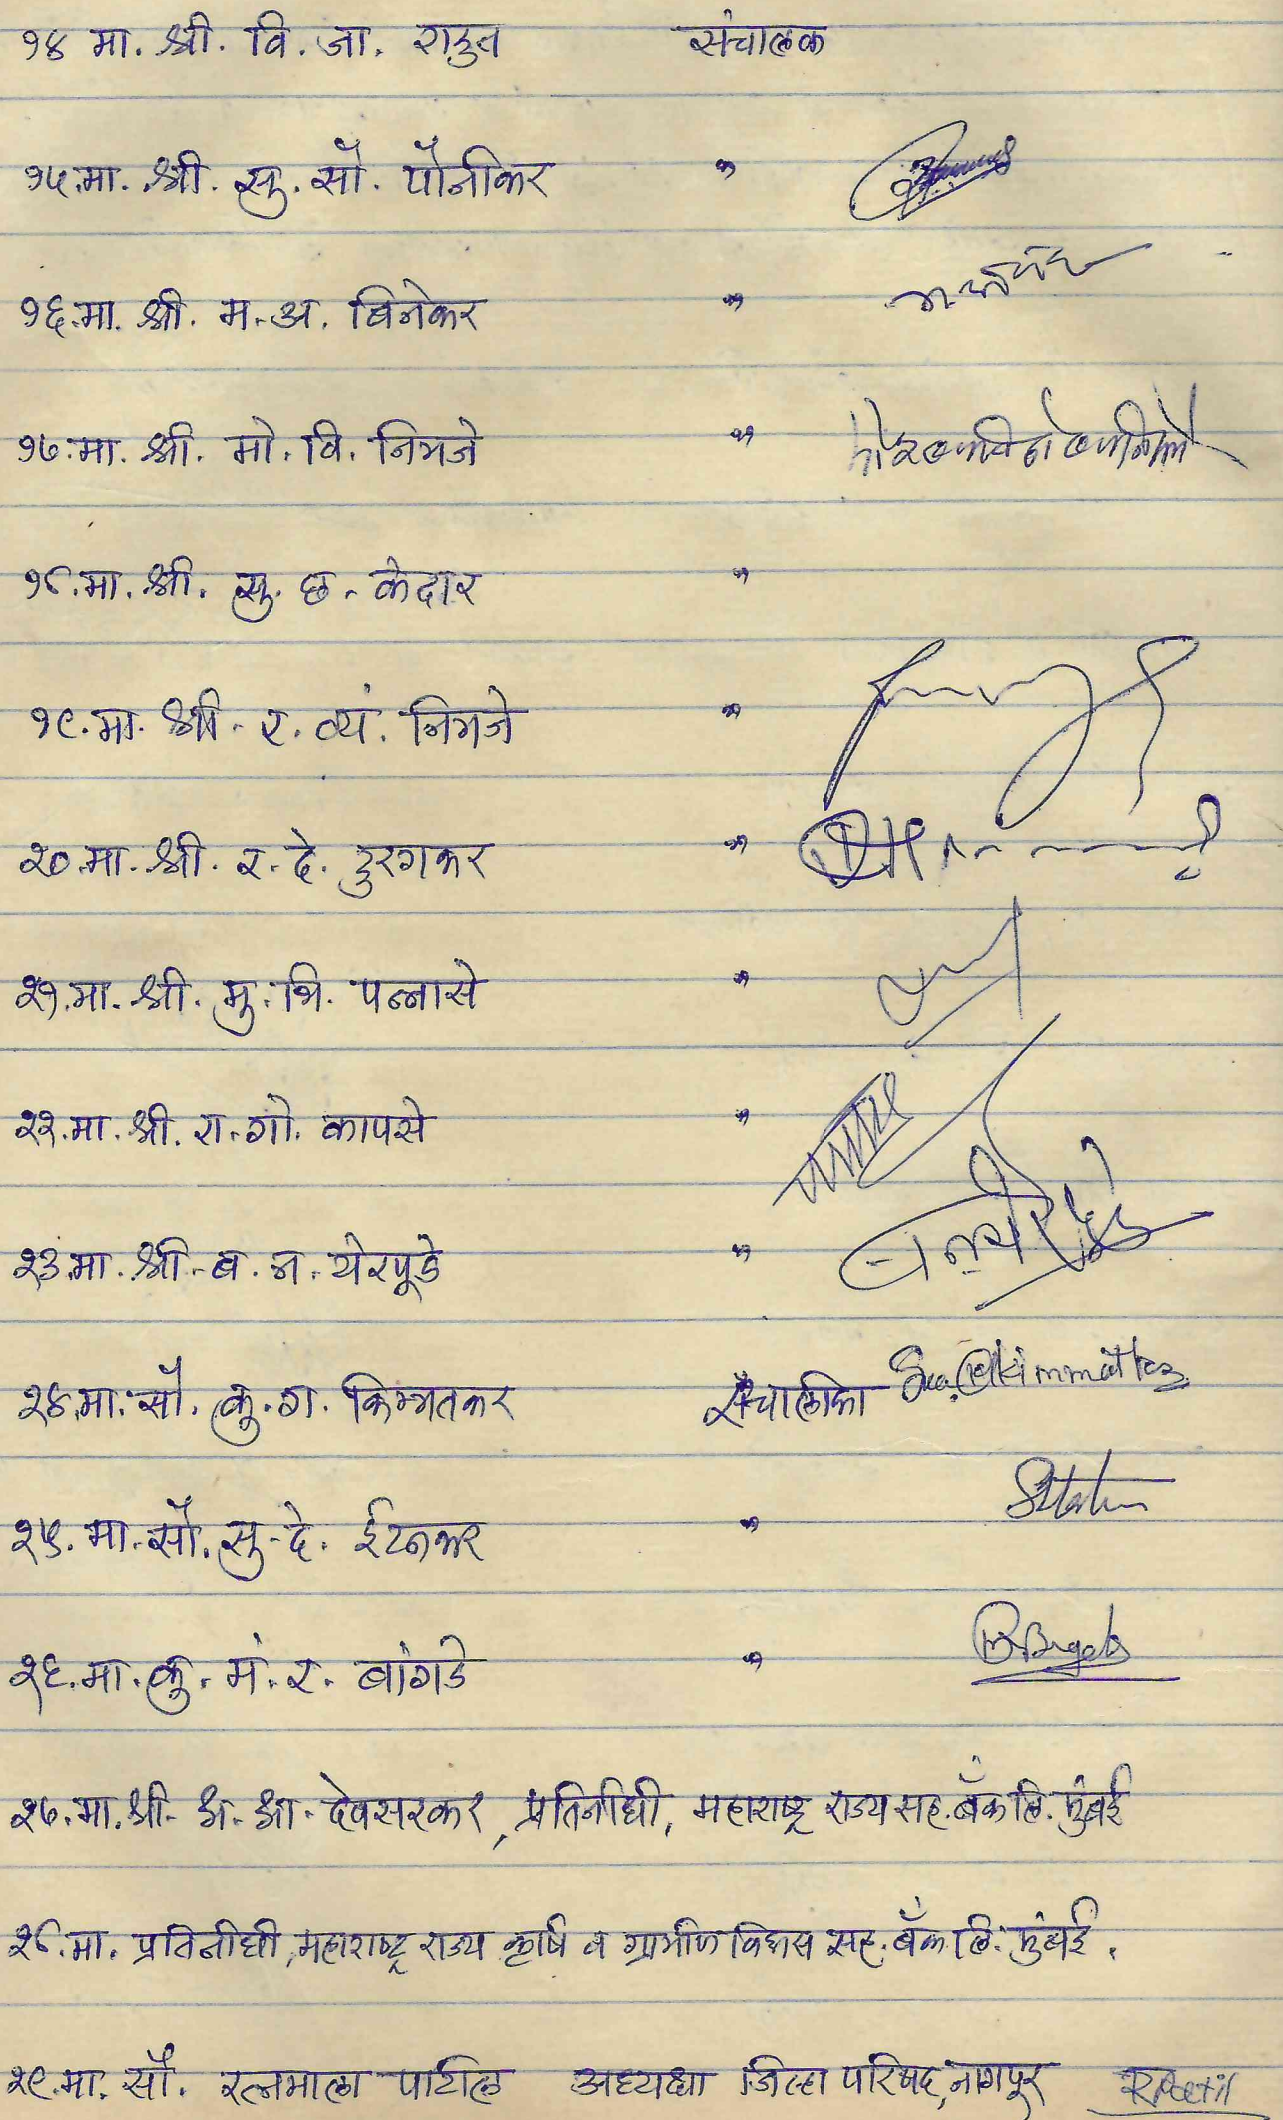 १४ मा. श्री. वि. जा. राऊत संचालक
१५.मा. श्री. सु. सौ. पौनीकर "
१६.मा. श्री. म. अ. बिनेकर "
१७.मा. श्री. मो. वि. निमजे "
१८.मा. श्री. सु. छ. केदार "
१९.मा. श्री. र. व्यं. निमजे "
२०.मा. श्री. र. दे. दुरुगकर "
२१.मा. श्री. मु. भि. पन्नासे "
२२.मा. श्री. रा. गो. कापसे "
२३.मा. श्री. ब. न. येरपूडे "
२४.मा. सौ. कु. ग. किम्मतकर संचालीका Sau. Kimmatkar
२५. मा. सौ. सु. दे. ईटनकर "
२६.मा. कु. मं. र. बांगडे "
२७.मा. श्री. अ. आ. देवसरकर, प्रतिनीधी, महाराष्ट्र राज्य सह. बँक लि. मुंबई
२८.मा. प्रतिनीधी, महाराष्ट्र राज्य कृषि व ग्रामीण विकास सह. बँक लि. मुंबई.
२९.मा. सौ. रत्नमाला पाटील अध्यक्षा जिल्हा परिषद, नागपूर RPatil